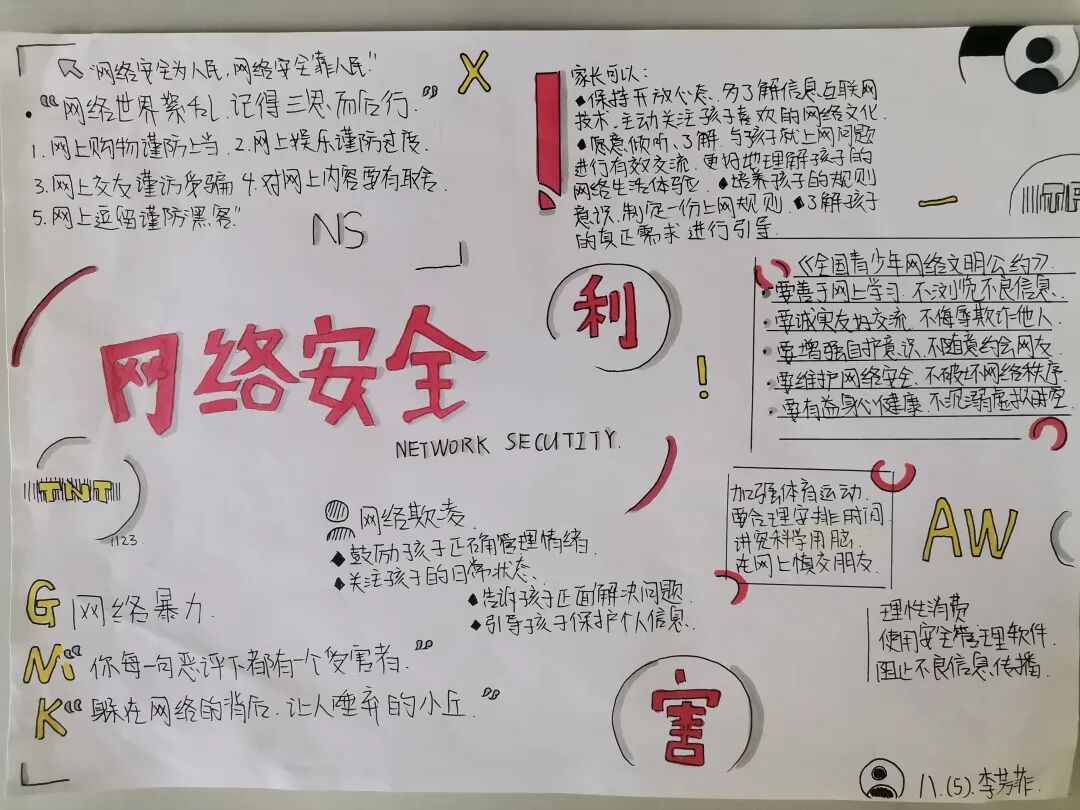 "网络安全为人民,网络安全靠人民"
"网络世界繁乱,记得三思而后行"
1.网上购物谨防上当.2.网上娱乐谨防过度.
3.网上交友谨防受骗 4.对网上内容要有取舍.
5.网上逗留谨防黑客"
NS
X
家长可以:
保持开放心态,多了解信息互联网
技术.主动关注孩子喜欢的网络文化.
愿意倾听、了解.与孩子就上网问题
进行有效交流.更好地理解孩子的
网络生活体验.培养孩子的规则
意识.制定一份上网规则.了解孩子
的真正需求 进行引导.
利
网络安全
NETWORK SECUTITY.
!
《全国青少年网络文明公约》.
要善于网上学习 不浏览不良信息.
要诚实友好交流.不侮辱欺诈他人.
要增强自护意识.不随意约会网友.
要维护网络安全.不破坏网络秩序.
要有益身心健康.不沉溺虚拟时空.
TNT
1123.
网络欺凌
鼓励孩子正确管理情绪.
关注孩子的日常状态.
告诉孩子正面解决问题.
引导孩子保护个人信息.
加强体育运动.
要合理安排时间.
讲究科学用脑.
在网上慎交朋友.
AW
G
网络暴力.
M
"你每一句恶评下都有一个受害者."
K
"躲在网络的背后.让人唾弃的小丘."
理性消费
使用安全管理软件.
阻止不良信息传播.
害
八.(5).李芳菲.